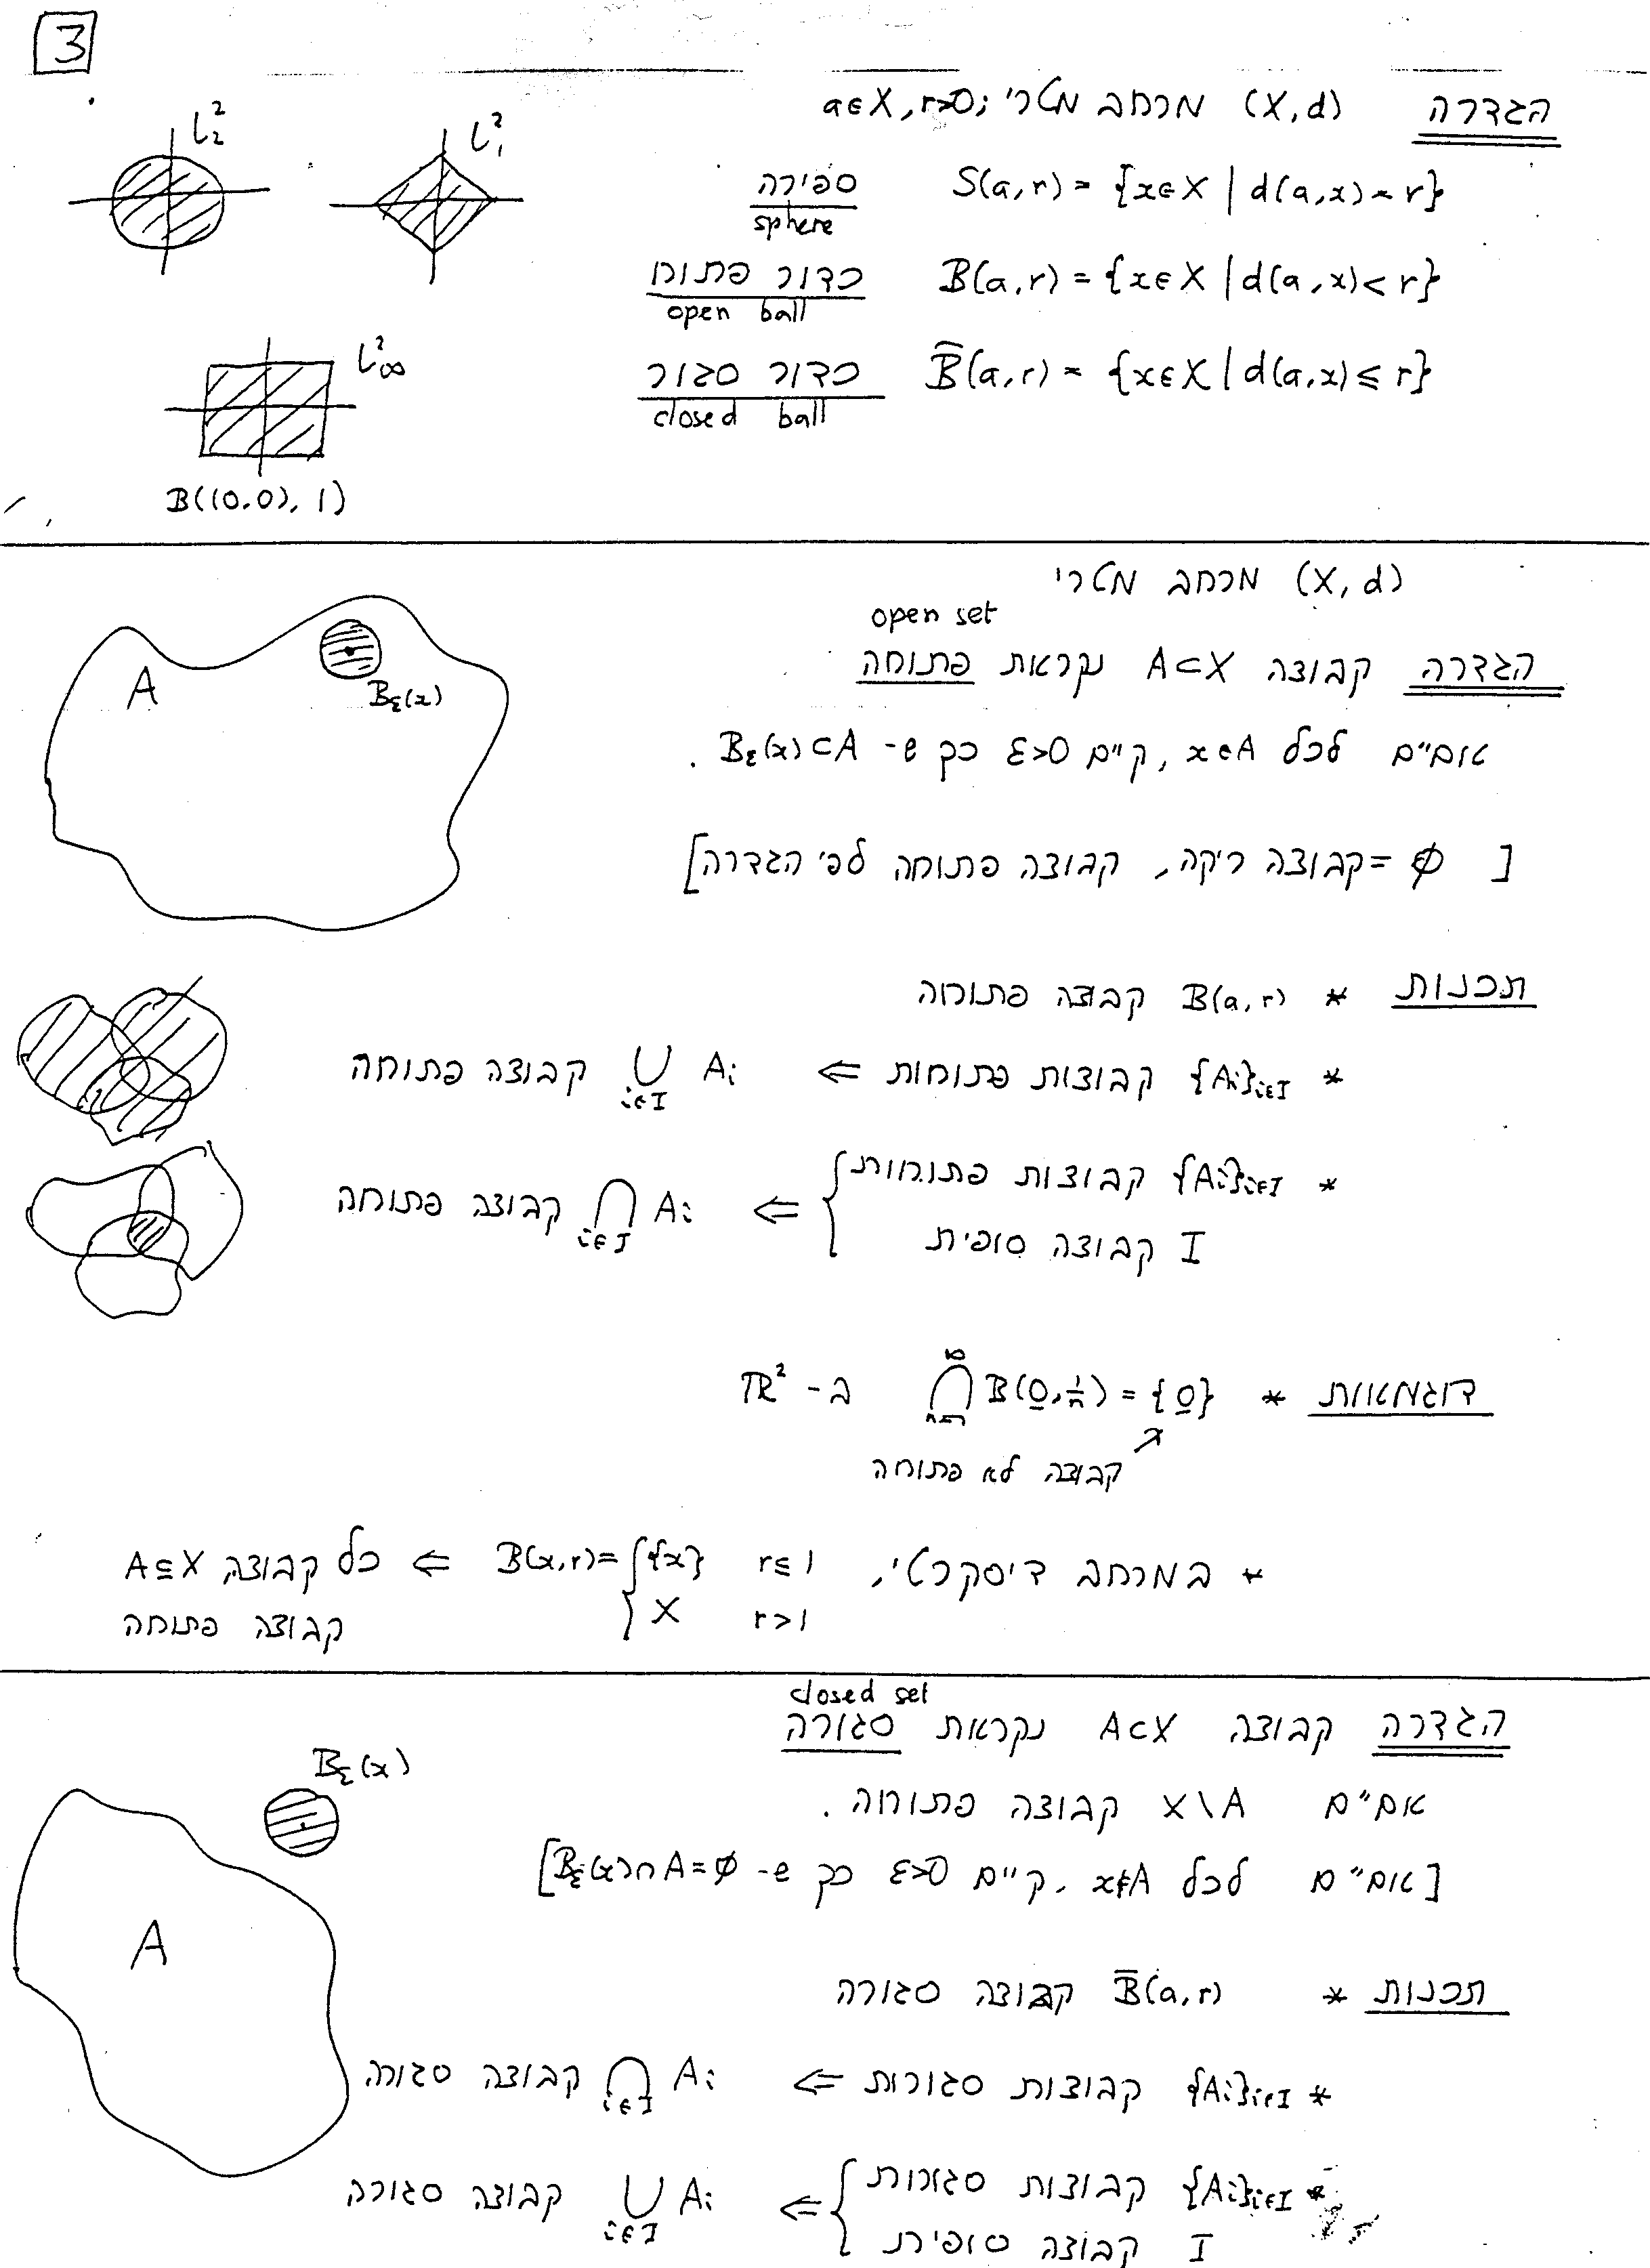 3
הגדרה (X,d) מרחב מטרי; a∈X, r>0
S(a,r) = {x∈X | d(a,x) = r} ספירה
sphere
B(a,r) = {x∈X | d(a,x) < r} כדור פתוח
open ball
B̅(a,r) = {x∈X | d(a,x) ≤ r} כדור סגור
closed ball
l₂² l₁²
l∞²
B((0,0), 1)
(X,d) מרחב מטרי
open set
הגדרה קבוצה A⊂X נקראת פתוחה
אם"ם לכל x∈A, קיים ε>0 כך ש- B_ε(x)⊂A.
[ ∅ = קבוצה ריקה, קבוצה פתוחה לפי הגדרה]
A B_ε(x)
תכונות * B(a,r) קבוצה פתוחה
* {A_i}_{i∈I} קבוצות פתוחות ⇐ ⋃_{i∈I} A_i קבוצה פתוחה
* {A_i}_{i∈I} קבוצות פתוחות
I קבוצה סופית ⇐ ⋂_{i∈I} A_i קבוצה פתוחה
דוגמאות * ⋂_{n=1}^∞ B(0,1/n) = {0} ב- ℝ²
קבוצה לא פתוחה
* במרחב דיסקרטי, B(x,r) = { {x} r≤1 ⇐ כל קבוצה A⊆X
X r>1 קבוצה פתוחה
closed set
הגדרה קבוצה A⊂X נקראת סגורה
אם"ם X\A קבוצה פתוחה.
[אם"ם לכל x∉A, קיים ε>0 כך ש- B_ε(x)∩A=∅]
B_ε(x)
A
תכונות * B̅(a,r) קבוצה סגורה
* {A_i}_{i∈I} קבוצות סגורות ⇐ ⋂_{i∈I} A_i קבוצה סגורה
* {A_i}_{i∈I} קבוצות סגורות
I קבוצה סופית ⇐ ⋃_{i∈I} A_i קבוצה סגורה